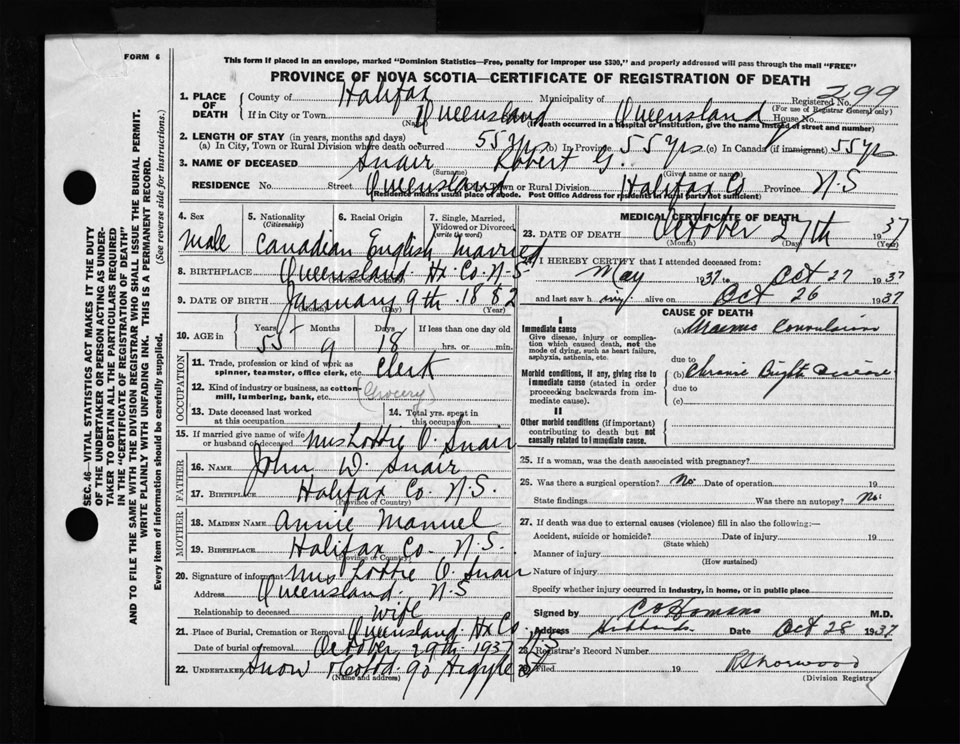 FORM 6
This form if placed in an envelope, marked "Dominion Statistics—Free, penalty for improper use $300," and properly addressed will pass through the mail "FREE"
PROVINCE OF NOVA SCOTIA—CERTIFICATE OF REGISTRATION OF DEATH
SEC. 46—VITAL STATISTICS ACT MAKES IT THE DUTY
OF THE UNDERTAKER OR PERSON ACTING AS UNDER-
TAKER TO OBTAIN ALL THE PARTICULARS REQUIRED
IN THE "CERTIFICATE OF REGISTRATION OF DEATH"
AND TO FILE THE SAME WITH THE DIVISION REGISTRAR WHO SHALL ISSUE THE BURIAL PERMIT.
WRITE PLAINLY WITH UNFADING INK. THIS IS A PERMANENT RECORD.
Every item of information should be carefully supplied. (See reverse side for instructions.)
1. PLACE OF DEATH County of Halifax Municipality of Registered No. 299
(For use of Registrar General only)
If in City or Town Queensland Queensland House No.
(If death occurred in a hospital or institution, give the name instead of street and number)
2. LENGTH OF STAY (in years, months and days)
(a) In City, Town or Rural Division where death occurred 55 yrs (b) In Province 55 yrs (c) In Canada (if immigrant) 55 yrs
3. NAME OF DECEASED Snair Robert G.
(Surname) (Given name or names)
RESIDENCE No. Street Queensland or Town or Rural Division Halifax Co Province N.S
(Residence means usual place of abode. Post Office Address for residents in rural parts not sufficient)
4. Sex Male
5. Nationality (Citizenship) Canadian
6. Racial Origin English
7. Single, Married, Widowed or Divorced (write the word) Married
8. BIRTHPLACE Queensland Hx. Co. N.S.
(Province or Country)
9. DATE OF BIRTH January 9th 1882
(Month) (Day) (Year)
10. AGE in Years 55 Months 9 Days 18 If less than one day old
hrs. or min.
OCCUPATION
11. Trade, profession or kind of work as spinner, teamster, office clerk, etc. Clerk
12. Kind of industry or business, as cotton-mill, lumbering, bank, etc. (Grocery)
13. Date deceased last worked at this occupation
14. Total yrs. spent in this occupation
15. If married give name of wife or husband of deceased Mrs Lottie O. Snair
FATHER
16. NAME John W. Snair
17. BIRTHPLACE Halifax Co. N.S.
(Province or Country)
MOTHER
18. MAIDEN NAME Annie Manuel
19. BIRTHPLACE Halifax Co. N.S.
(Province or Country)
20. Signature of informant Mrs Lottie O. Snair
Address Queensland N.S
Relationship to deceased wife
21. Place of Burial, Cremation or Removal Queensland Hx Co. N.S.
Date of burial or removal October 29th 1937
22. UNDERTAKER Snow & Co Ltd. 90 Argyle St
(Name and address)
MEDICAL CERTIFICATE OF DEATH
23. DATE OF DEATH October 27th 1937
(Month) (Day) (Year)
24. I HEREBY CERTIFY that I attended deceased from:
May 1937 to Oct 27 1937
and last saw h im alive on Oct 26 1937
CAUSE OF DEATH
I
Immediate cause
Give disease, injury or complication which caused death, not the mode of dying, such as heart failure, asphyxia, asthenia, etc.
(a) Uraemic Convulsion
due to
Morbid conditions, if any, giving rise to immediate cause (stated in order proceeding backwards from immediate cause).
(b) Chronic Brights Disease
due to
(c)
II
Other morbid conditions (if important) contributing to death but not causally related to immediate cause.
25. If a woman, was the death associated with pregnancy?
26. Was there a surgical operation? No Date of operation 19
State findings Was there an autopsy? No
27. If death was due to external causes (violence) fill in also the following:—
Accident, suicide or homicide? Date of injury 19
(State which)
Manner of injury
(How sustained)
Nature of injury
Specify whether injury occurred in industry, in home, or in public place
Signed by C O Homans M.D.
Address Hubbards Date Oct 28 1937
28. Registrar's Record Number
29. Filed 19
(Division Registrar)